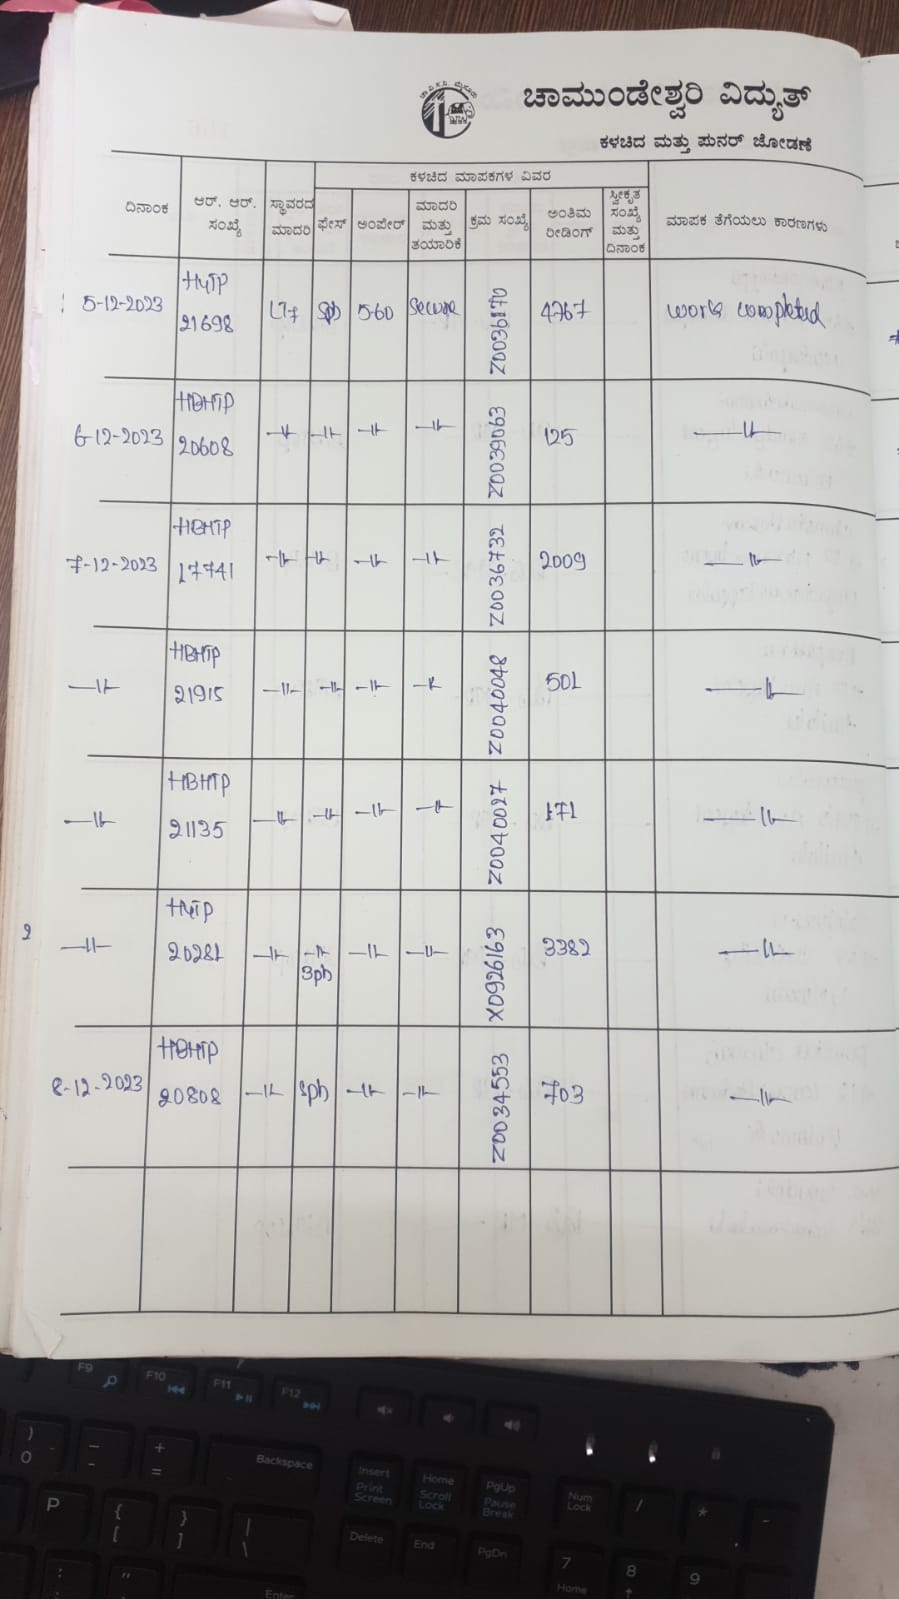 ಚಾಮುಂಡೇಶ್ವರಿ ವಿದ್ಯುತ್
ಕಳಚಿದ ಮತ್ತು ಪುನರ್ ಜೋಡಣೆ
ಕಳಚಿದ ಮಾಪಕಗಳ ವಿವರ
ದಿನಾಂಕ ಆರ್. ಆರ್. ಸಂಖ್ಯೆ ಸ್ಥಾವರದ ಮಾದರಿ ಫೇಸ್ ಅಂಪೇರ್ ಮಾದರಿ ಮತ್ತು ತಯಾರಿಕೆ ಕ್ರಮ ಸಂಖ್ಯೆ ಅಂತಿಮ ರೀಡಿಂಗ್ ಸ್ವೀಕೃತ ಸಂಖ್ಯೆ ಮತ್ತು ದಿನಾಂಕ ಮಾಪಕ ತೆಗೆಯಲು ಕಾರಣಗಳು
5-12-2023 21698 LT7 5-60 Secure 4767 work completed
6-12-2023 HBHTP 20608 -11- -11- -11- -11- Z0039063 125 -11-
7-12-2023 HBHTP 17741 -11- -11- -11- -11- Z0036732 2009 -11-
-11- HBHTP 21915 -11- -11- -11- -11- Z0040048 501 -11-
-11- HBHTP 21135 -11- -11- -11- -11- Z0040027 171 -11-
2 -11- 20281 -11- -11- 3ph -11- -11- X0926163 3382 -11-
8-12-2023 HBHTP 20808 -11- -11- -11- Z0034553 703 -11-
F9 F10 F11 F12
) 0 - + = Backspace Insert Print Screen Home Scroll Lock PgUp Pause Break Num Lock / * -
P { [ } ] | \ Delete End PgDn 7 Home 8 9
: ; " Enter